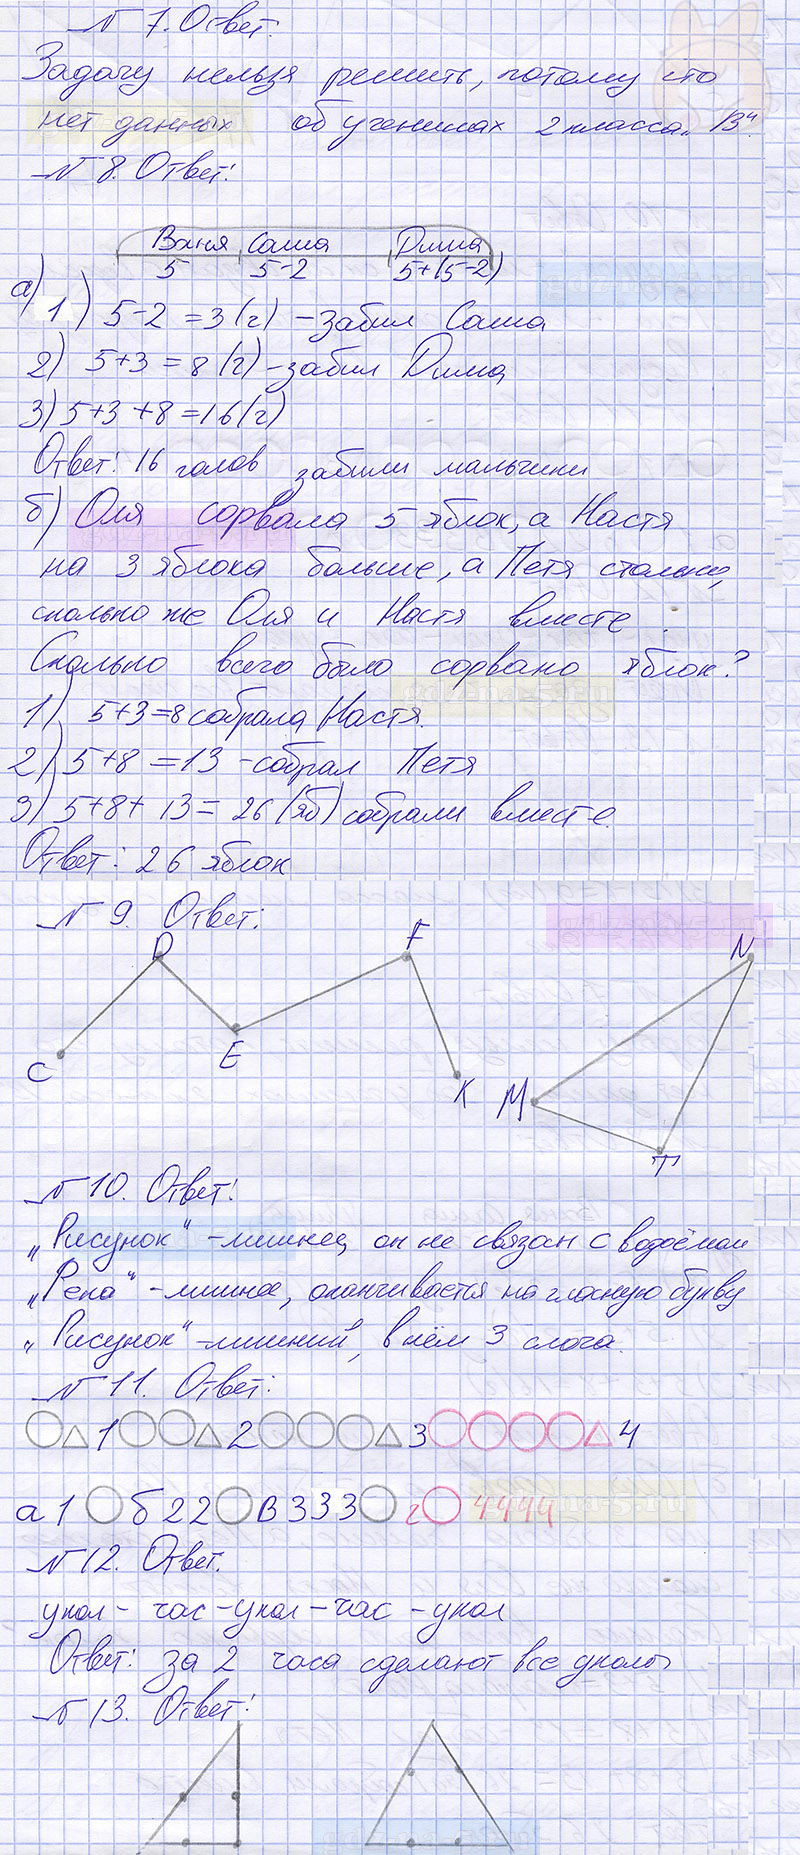 № 7. Ответ:
Задачу нельзя решить, потому что
нет данных об учениках 2 класса „В“.
№ 8. Ответ:
Ваня Саша Дима
5 5-2 5+(5-2)
а)
1) 5-2=3(г) - забил Саша
2) 5+3=8(г) - забил Дима
3) 5+3+8=16(г)
Ответ: 16 голов забили мальчики
б) Оля сорвала 5 яблок, а Настя
на 3 яблока больше, а Петя столько,
сколько же Оля и Настя вместе.
Сколько всего было сорвано яблок?
1) 5+3=8 собрала Настя.
2) 5+8=13 - собрал Петя
3) 5+8+13=26(яб) собрали вместе.
Ответ: 26 яблок
№ 9. Ответ:
D F N
C E K M
T
№ 10. Ответ:
„Рисунок“ - лишнее, он не связан с водоёмом
„Река“ - лишнее, оканчивается на гласную букву
„Рисунок“ - лишний, в нём 3 слога.
№ 11. Ответ:
1 2 3 4
а 1 б 22 в 333 г 4444
№ 12. Ответ.
укол - час - укол - час - укол
Ответ: за 2 часа сделают все уколы
№ 13. Ответ: